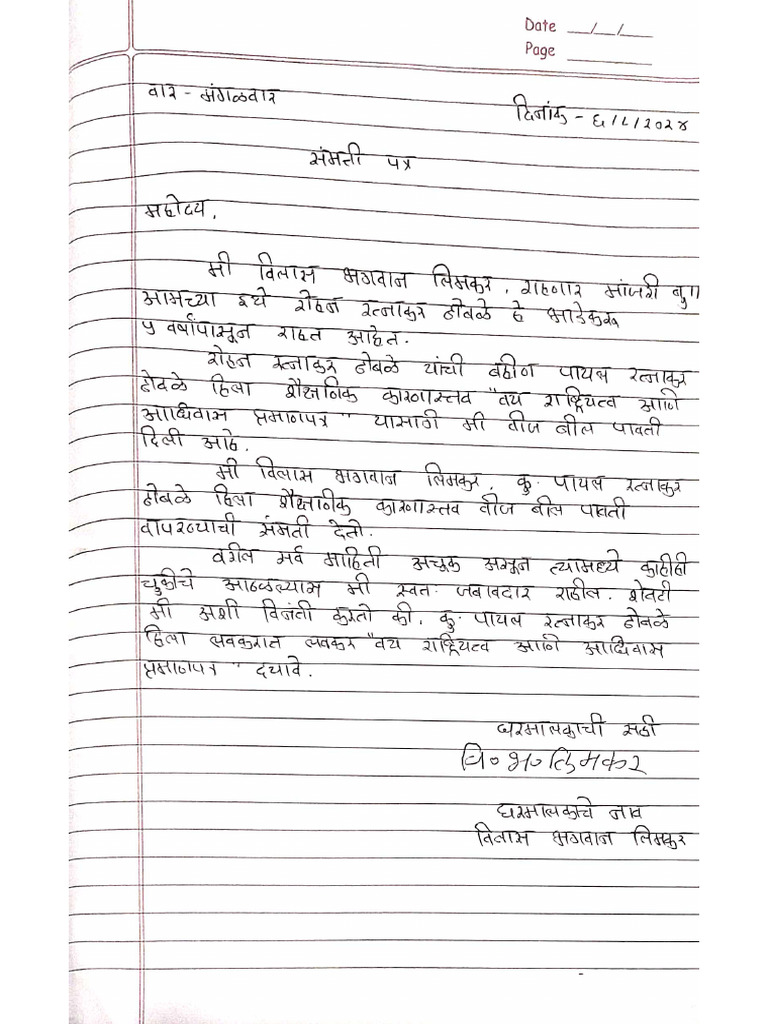 Date __/__/__
Page ________
वार - मंगळवार
दिनांक - ६/८/२०२४
संमती पत्र
महोदय,
मी विलास भगवान लिमकर, राहणार मांजरी बु॥
आमच्या इथे रोहन रत्नाकर ढोबळे हे भाडेकरू
५ वर्षांपासून राहत आहेत.
रोहन रत्नाकर ढोबळे यांची बहीण पायल रत्नाकर
ढोबळे हिला शैक्षणिक कारणास्तव "वय राष्ट्रियत्व आणि
आधिवास प्रमाणपत्र" यासाठी मी वीज बील पावती
दिली आहे.
मी विलास भगवान लिमकर, कु. पायल रत्नाकर
ढोबळे हिला शैक्षणीक कारणास्तव वीज बील पावती
वापरण्याची संमती देतो.
वरील सर्व माहिती अचुक असून त्यामध्ये काहीही
चुकीचे आढळल्यास मी स्वतः जबाबदार राहील. शेवटी
मी अशी विनंती करतो की, कु. पायल रत्नाकर ढोबळे
हिला लवकरात लवकर "वय राष्ट्रियत्व आणि आधिवास
प्रमाणपत्र" दयावे.
घरमालकाची सही
वि०भ०लिमकर
घरमालकाचे नाव
विलास भगवान लिमकर